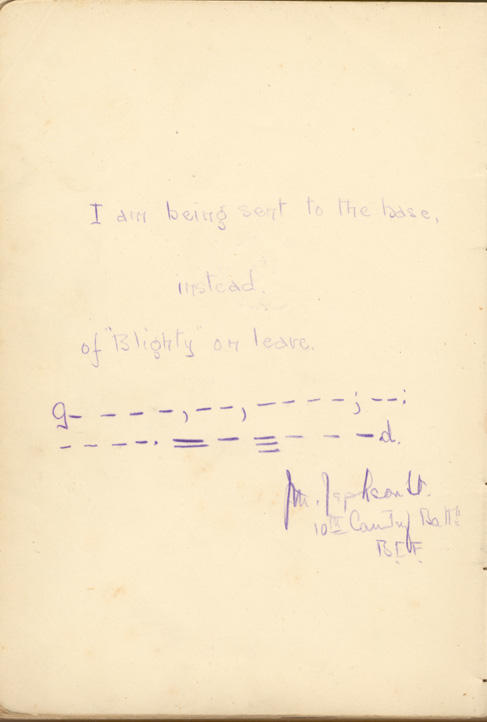 I am being sent to the base,
instead.
of "Blighty" on leave.
g- - - - -, - -, - - - - -; - -:
- - - - . = - ≡ - - - -d.
Lt.
10th Can Inf Battn
B.E.F.